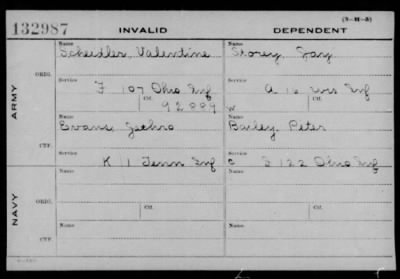 (3-11-3)
132987 INVALID DEPENDENT
ARMY
ORIG.
Name
Scheidler, Valentine
Name
Storey, Jay
Service
F 107 Ohio Inf
Ctf.
92009
Service
A 16 Wis Inf
Ctf.
W
CTF.
Name
Evans, Jethro
Name
Bailey, Peter
Service
K 1 Tenn Inf
Service
C I 122 Ohio Inf
NAVY
ORIG.
Name
Name
Ctf.
Ctf.
CTF.
Name
Name